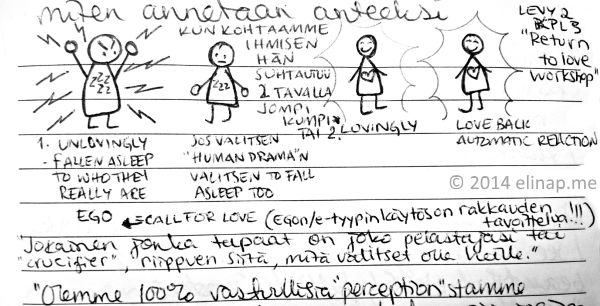 miten annetaan anteeksi
LEVY 2
KPL 3
"Return
to love
workshop"
KUN KOHTAAMME
IHMISEN
HÄN
SUHTAUTUU
2 TAVALLA
JOMPI
KUMPI
zzz
zzz
zzz
zzz
1. UNLOVINGLY
- FALLEN ASLEEP
TO WHO THEY
REALLY ARE
JOS VALITSEN
"HUMAN DRAMA"N
VALITSEN TO FALL
ASLEEP TOO
TAI 2. LOVINGLY
LOVE BACK
AUTOMATIC REACTION
© 2014 elinap.me
EGO ← CALL FOR LOVE (EGOn/e-tyypin käytös on rakkauden
tavoittelua!!!)
"Jokainen jonka tapaat on joko pelastajasi tai
"crucifier", riippuen siitä, mitä valitset olla heille."
"Olemme 100% vastuullisia "perception"stamme